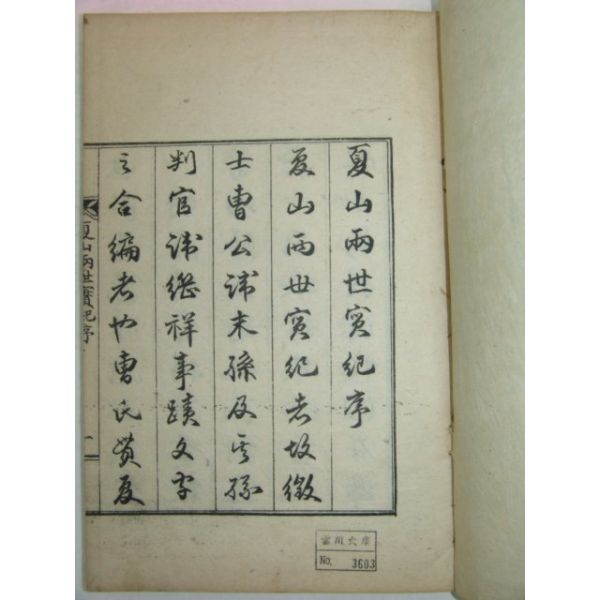 夏山兩世實紀序
夏山兩世實紀者故徵
士曺公諱末孫及其孫
判官諱繼祥事蹟文字
之合編者也曺氏貫夏
夏山兩世實紀序
一
富川文庫
No. 3603